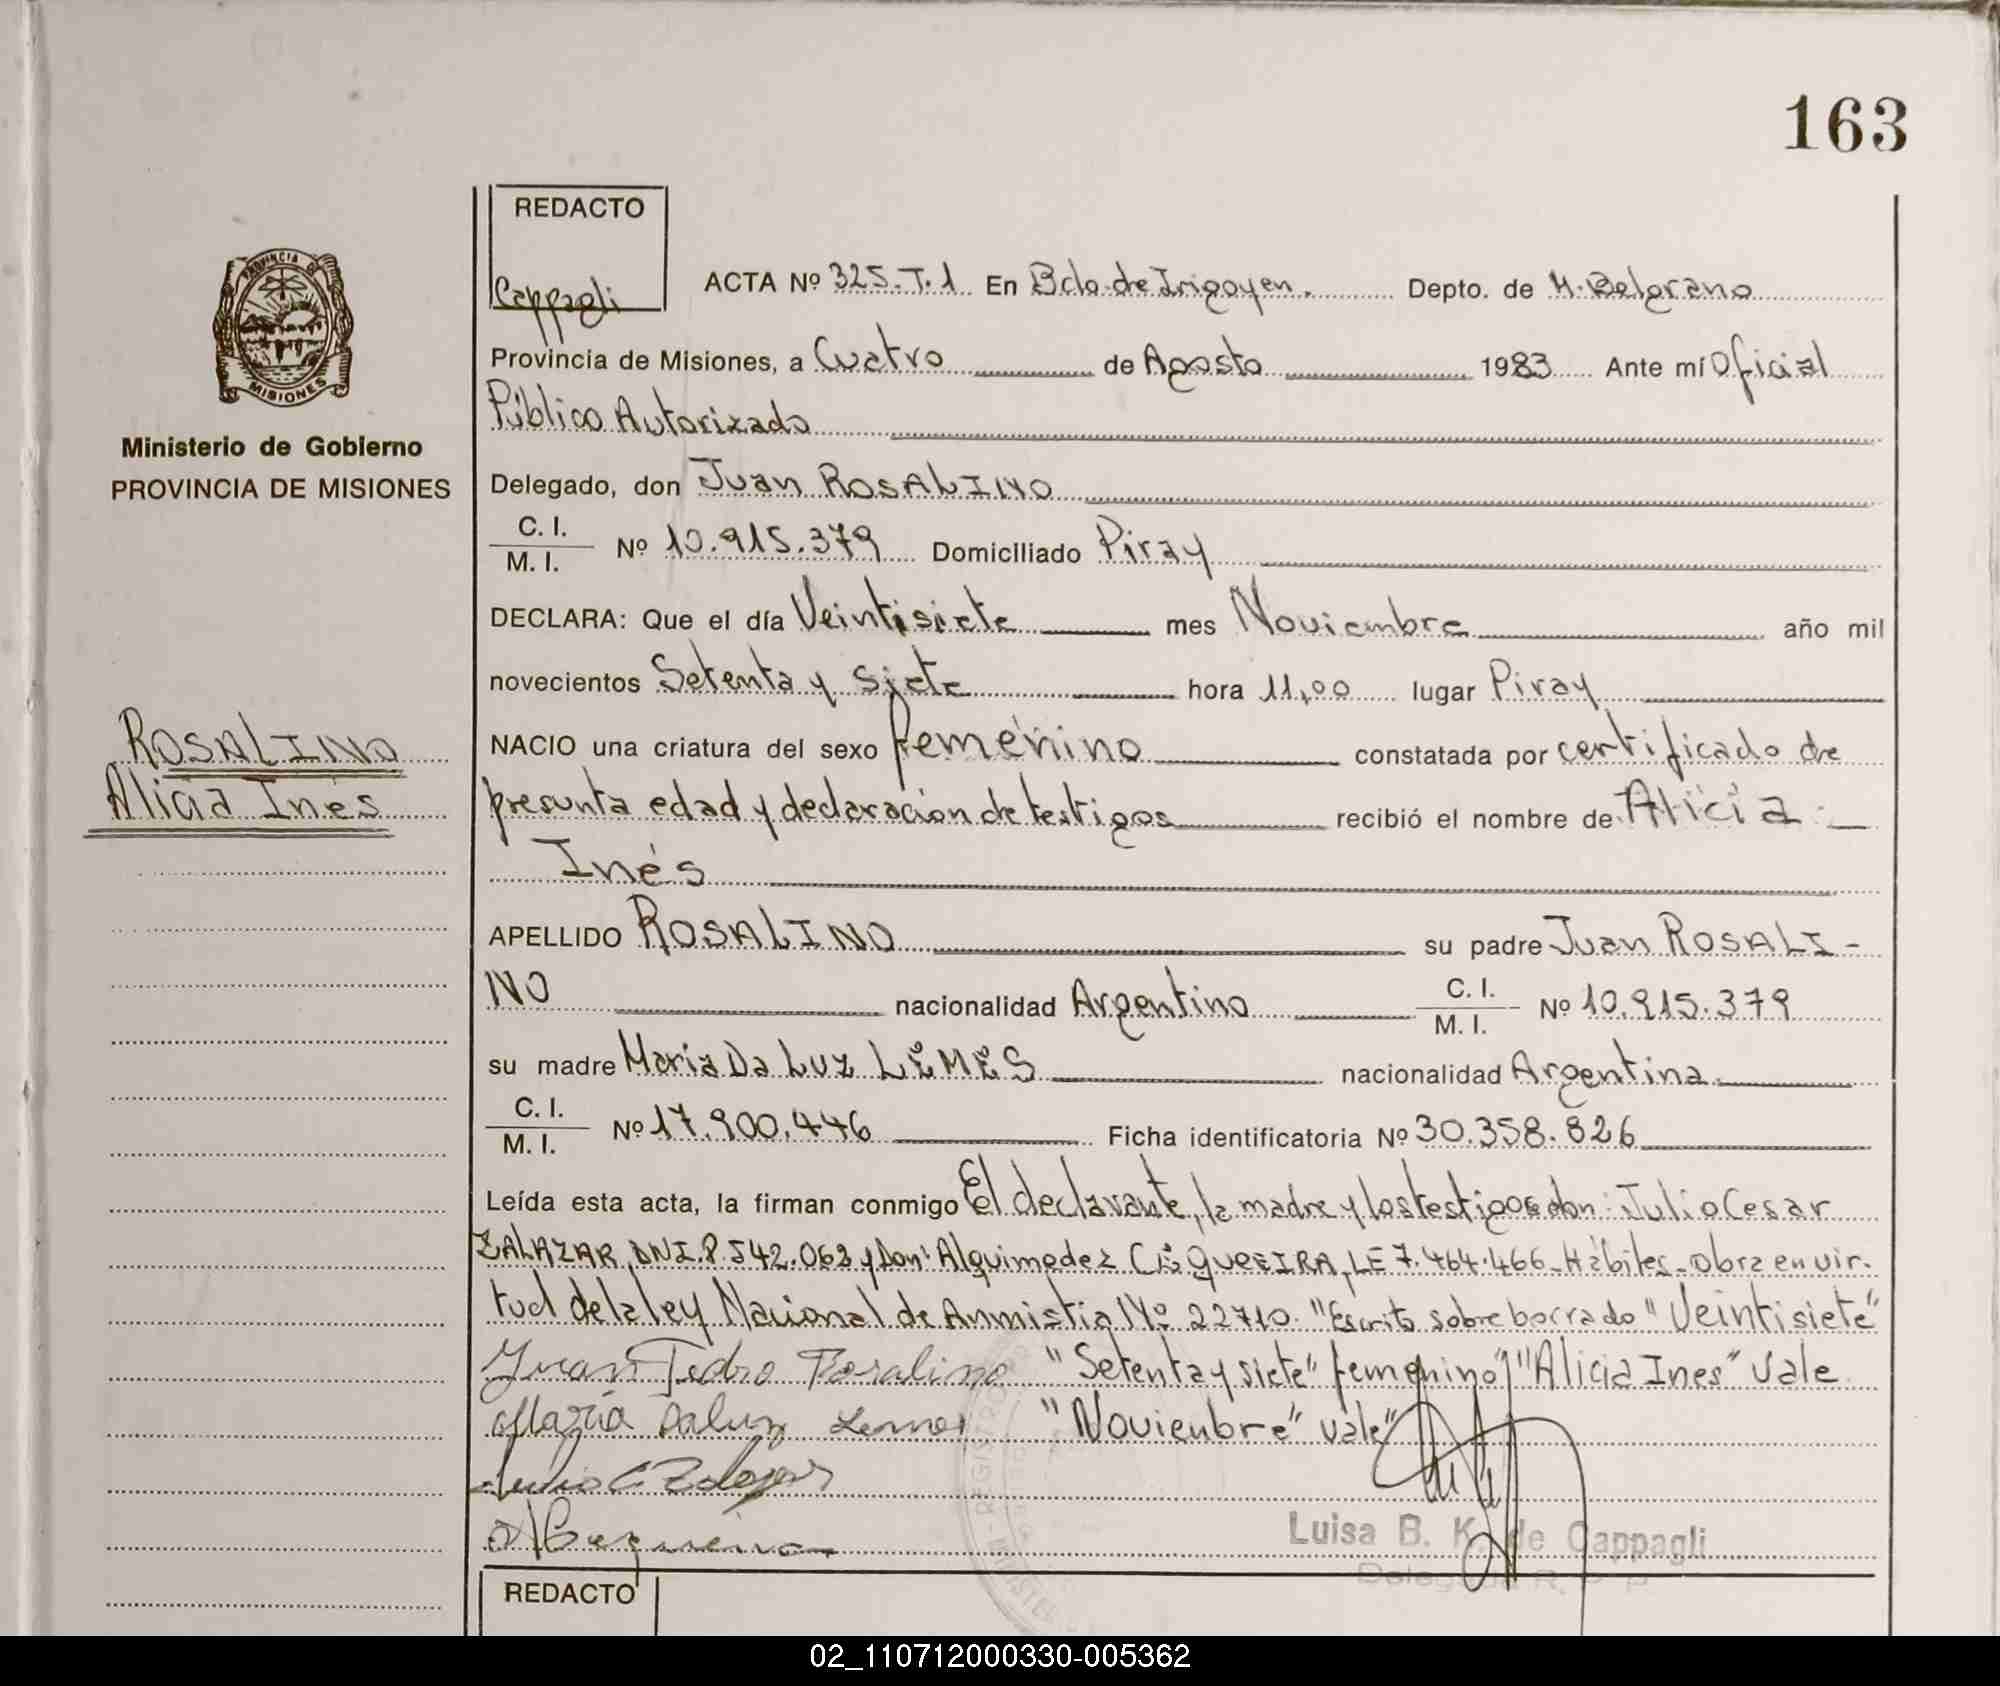 163
REDACTO
Cappagli
ACTA Nº 325. T. 1 En Bdo. de Irigoyen. Depto. de M. Belgrano
PROVINCIA DE
MISIONES
Provincia de Misiones, a Cuatro de Agosto 1983 Ante mí Oficial
Público Autorizado
Ministerio de Gobierno
PROVINCIA DE MISIONES
Delegado, don Juan ROSALINO
C. I.
M. I. Nº 10.915.379 Domiciliado Piray
DECLARA: Que el día Veintisiete mes Noviembre año mil
novecientos Setenta y siete hora 11,00 lugar Piray
ROSALINO
Alicia Inés
NACIO una criatura del sexo femenino constatada por certificado de
presunta edad y declaración de testigos recibió el nombre de Alicia
Inés
APELLIDO ROSALINO su padre Juan ROSALI-
NO nacionalidad Argentino C. I.
M. I. Nº 10.915.379
su madre Maria Da LUZ LEMES nacionalidad Argentina
C. I.
M. I. Nº 17.900.446 Ficha identificatoria Nº 30.358.826
Leída esta acta, la firman conmigo El declarante, la madre y los testigos don: Julio Cesar
ZALAZAR, DNI. 8.542.063 y Don: Alquimedez CEQUEIRA, LE 7.464.466 - Hábiles - obra en vir-
tud de la ley Nacional de Anmistia Nº 22710. "Escrito sobre borrado "Veintisiete"
Juan Pedro Rosalino "Setenta y siete" femenino" "Alicia Ines" Vale
Maria Daluz Lemes "Noviembre" vale"
Julio C Zalazar
A Cequeira
Luisa B. K. de Cappagli
REDACTO
02_110712000330-005362